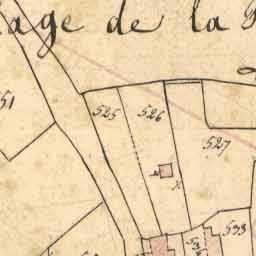 age de la
51
525
526
527
593